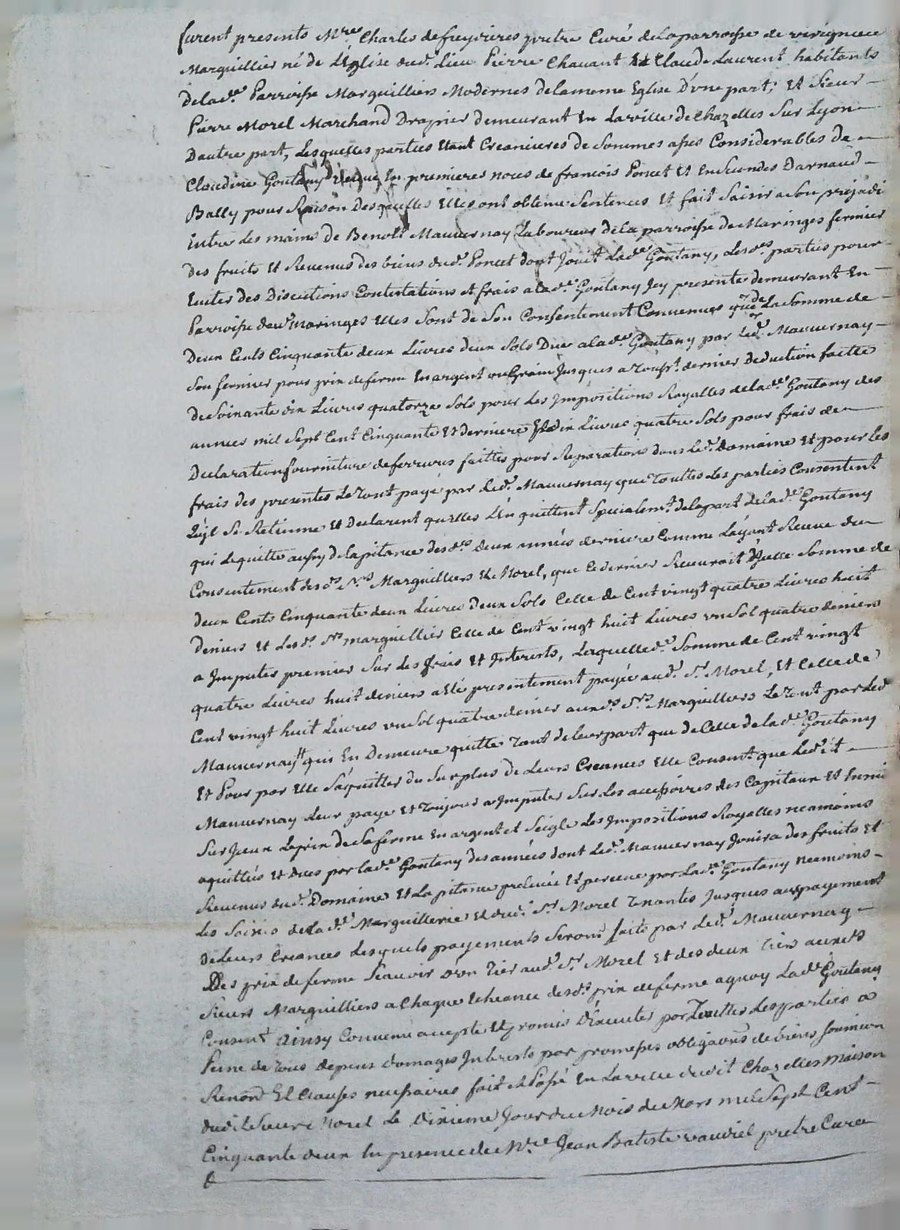 furent presents Mre Charles de freydieres pretre Curé de la parroisse de
Marguillier né de L'Eglise dud. Lieu Pierre Chavant Et Claude Laurent habitants
de lad.e Parroisse Marguilliers Modernes de la meme Eglise D'une part; Et Sieur
Pierre Morel Marchand Drapier demeurant En La ville de Chazelles Sur Lyon
Dautre part, Lesquelles parties Etant Creancieres de Sommes assés Considerables de
Claudine Goutany veuve En premieres noces de francois Poncet Et En Secondes Darnaud
Bally pour Raison Desquelles Elles ont obtenu Sentences Et fait Saisir a Son prejudi
Entre les mains de Benoît Mauvernay Laboureur de la parroisse de Maringes fermier
des fruits Et Revenus des biens dud. Poncet dont Jouit Lad.e Goutany, Lesd.es parties pour
Eviter des Discutions Contestations Et frais a lad.e Goutany Icy presente demeurant En
Parroisse dud. Maringes Elles Sont de Son Consentement Convenues que de La Somme de
Deux Cents Cinquante deux Livres deux Sols Due a lad.e Goutany par Led. Mauvernay
Son fermier pour prix de ferme En argent ou Grain Jusques a dernier Deduction faitte
de Soixante dix Livres quatorze Sols pour Les Impositions Royalles de lad.e Goutany des
années mil Sept Cent Cinquante Et derniere Et dix Livres quatre Sols pour frais de
Declaration fourniture de ferrures faittes pour Reparations dans Led. Domaine Et pour Les
frais des presentes Le tout payé par Led. Mauvernay que Touttes Les parties Consentent
Qu'il Se Retienne Et Declarent qu'elles L'en quittent Specialem.t de la part de lad.e Goutany
qui Le quitte aussy de La pitance desd.es Deux années derniere Comme L'ayant Receue du
Consentement desd.s Srs Marguilliers Et Morel, que Ce dernier Recevroit D'icelle Somme de
deux Cents Cinquante deux Livres deux Sols Celle de Cent vingt quatre Livres huit
deniers Et Lesd. Srs marguillier Celle de Cent vingt huit Livres un Sol quatre deniers
a Imputer premier Sur Les frais Et Interests, Laquelle d. Somme de Cent vingt
quatre Livres huit deniers a Eté presentement payée aud. Sr. Morel, Et Celle de
Cent vingt huit Livres un Sol quatre denier auxd. Srs Marguilliers Le Tout par Led
Mauvernay qui En Demeure quitte Tant de Leur part que de Celle de lad.e Goutany
Et Pour par Elle S'aquitter du Surplus de Leurs Creances Elle Consent que Led.it
Mauvernay Leur paye Et Toujours a Imputer Sur Les accessoires des Capitaux Et Ensui
Sur Iceux Le prix de Sa ferme En argent et Seigle Les Impositions Royalles neamoins
aquittés Et dues par lad.e Goutany des années dont Led. Mauvernay Jouira des fruits Et
Revenus dud. Domaine Et La pitance prelevée Et perceue par lad.e Goutany neamoins
Les Saisies de lad.e Marguillerie Et dud. Sr. Morel Tenantes Jusques au payement
de Leurs Creances Lesquels payements Seront faits par Led. Mauvernay
Des prix de ferme Scavoir d'un Tier aud. Sr. Morel Et des deux Tiers auxdts
Sieurs Marguilliers a Chaque Echeance desd. prix de ferme a quoy Lad.e Goutany
Consent Ainsy Convenu accepté Et promis D'executer par Touttes Les parties a
Peine de Tous depens domages Interests par promesses obligaons de biens Soumission
Renonc.on Et Clauses necessaires fait Et Passé En La ville dudit Chazelles Maison
dudit Sieur Morel Le Dixieme Jour du Mois de Mars mil Sept Cent
Cinquante deux En presence de Mre Jean Batiste pretre Cure